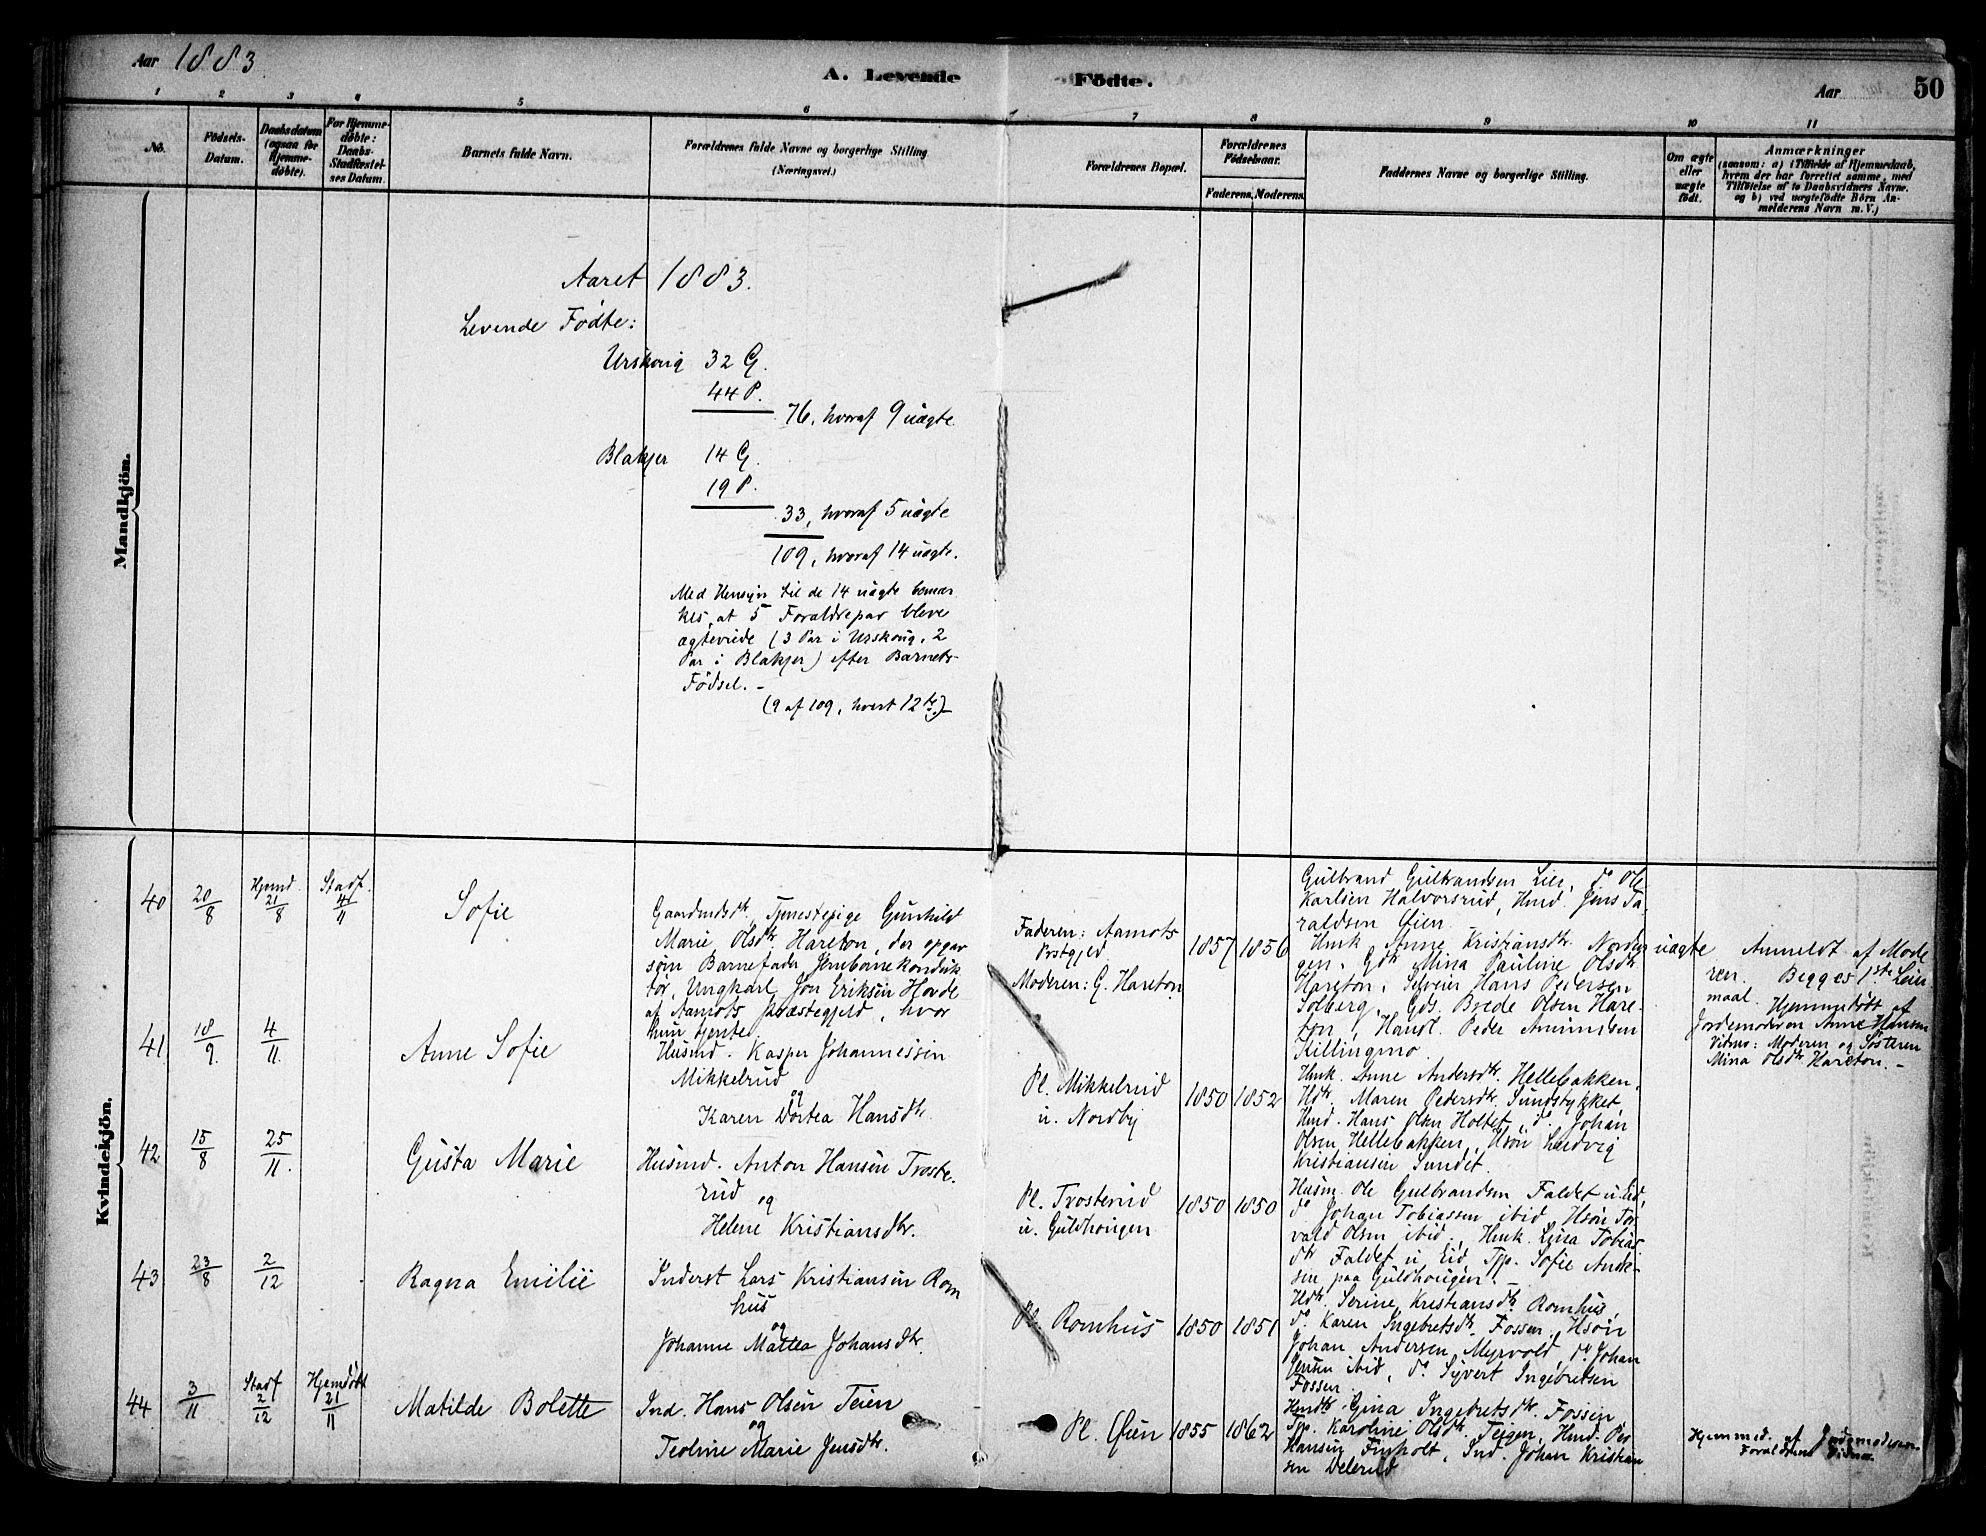 Aar 1883
A. Levende Födte.
Aar 50
1 2 3 4 5 6 7 8 9 10 11
No.
Födsels-
Datum.
Daabsdatum
(ogsaa for
Hjemme-
døbte).
For Hjemme-
døbte:
Daabs-
Stadfæstel-
ses Datum.
Barnets fulde Navn.
Forældrenes fulde Navne og borgerlige Stilling
(Næringsvei.)
Forældrenes Bopæl.
Forældrenes
Fødselsaar.
Faderens. Moderens.
Faddernes Navne og borgerlige Stilling.
Om ægte
eller
uægte
født.
Anmærkninger
(saasom: a) i Tilfælde af Hjemmedaab,
hvem der har forrettet samme, med
Tilføielse af to Daabsvidners Navne.
og b) ved uægtefödte Börn An-
melderens Navn m. V.)
Mandkjön.
Aaret 1883.
Levende Födte:
Urskoug 32 G.
44 P.
76, hvoraf 9 uægte.
Blakjer 14 G.
19 P.
33, hvoraf 5 uægte
109, hvoraf 14 uægte.
Med Hensyn til de 14 uægte bemær
kes, at 5 Forældrepar bleve
ægteviede (3 Par i Urskoug, 2
Par i Blakjer) efter Barnets
Födsel. -
(9 af 109, hvert 12te.)
Kvindekjön.
40
20/8
Hjemd.
21/8
Stadf.
4/11
Sofie
Gaardmdsdtr, Tjenestepige Gunhild
Marie Olsdtr Hareton, der opgav
som Barnefader Jernbanekonduk
tør, Ungkarl Jon Eriksen Hovde
af Aamots Præstegjeld, hvor
hun tjente.
Faderen: Aamots
Prstgjeld
Moderen: G. Hareton
1857 1856
Gulbrand Gulbrandsen Lier, do Ole
Karlsen Halvorsrud, Hmd. Jens Ta-
raldsen Øien
Hmk Anne Kristiansdtr. Nordeng
gen, Gdtr Mina Pauline Olsdtr
Hareton, Selveier Hans Pedersen
Solberg, Gds. Brede Olsen Hare-
ton, Handl. Peder Amundsen
Killingmo.
uægte
Anmeldt af Mode
ren. Begges 1ste Leier
maal. Hjemmedöbt af
Jordemoderen Anne Hansen
Vidner: Moderen og Søsteren
Mina Olsdtr Hareton. -
41
18/9.
4/11.
Anne Sofie
Husmd. Kasper Johannessen
Mikkelrud
og
Karen Dortea Hansdtr.
Pl. Mikkelrud
u. Nordby
1850 1852
Hmk. Anne Andersdtr. Hellebakken,
Hdtr. Maren Pedersdtr Sundstykket
Hmd. Hans Olsen Holtet, do. Johan
Olsen Hellebakken, Hsön Ludvig
Kristiansen Sundet.
42
15/8
25/11.
Gusta Marie
Husmd. Anton Hansen Troste-
rud
og
Helene Kristiansdtr.
Pl. Trosterud
u. Guldhougen
1850 1850
Husm. Ole Gulbrandsen Faldet u Eid,
do Johan Tobiassen ibid, Hsön Tor
vald Olsen ibid., Hmk. Lina Tobias
dtr Faldet u Eid, Tjp. Sofie Ander-
sen paa Guldhougen. -
43
23/8
2/12
Ragna Emilie
Inderst Lars Kristiansen Rom
hus
og
Johanne Mattea Johansdtr.
Pl. Romhus
1850 1851
Hdtr. Serine Kristiansdtr Romhus,
do. Karen Ingebretsdtr. Fossen, Hsön
Johan Andersen Myrvold, do Johan
Jensen ibid, do Syvert Ingebretsen
Fossen
44
3/11
Stadf
2/12
Hjemdöbt
21/11
Matilde Bolette
Ind. Hans Olsen Teien
og
Teoline Marie Jensdtr.
Pl. Øien
1855 1862
Hmdtr Gina Ingebretsdtr. Fossen
Tjp. Karoline Olsdtr. Teigen, Hmd. Per
Hansen Finholt, Ind. Johan Kristian
sen Delerud
Hjemmed. af Jordemoderen
Forældrene Vidner